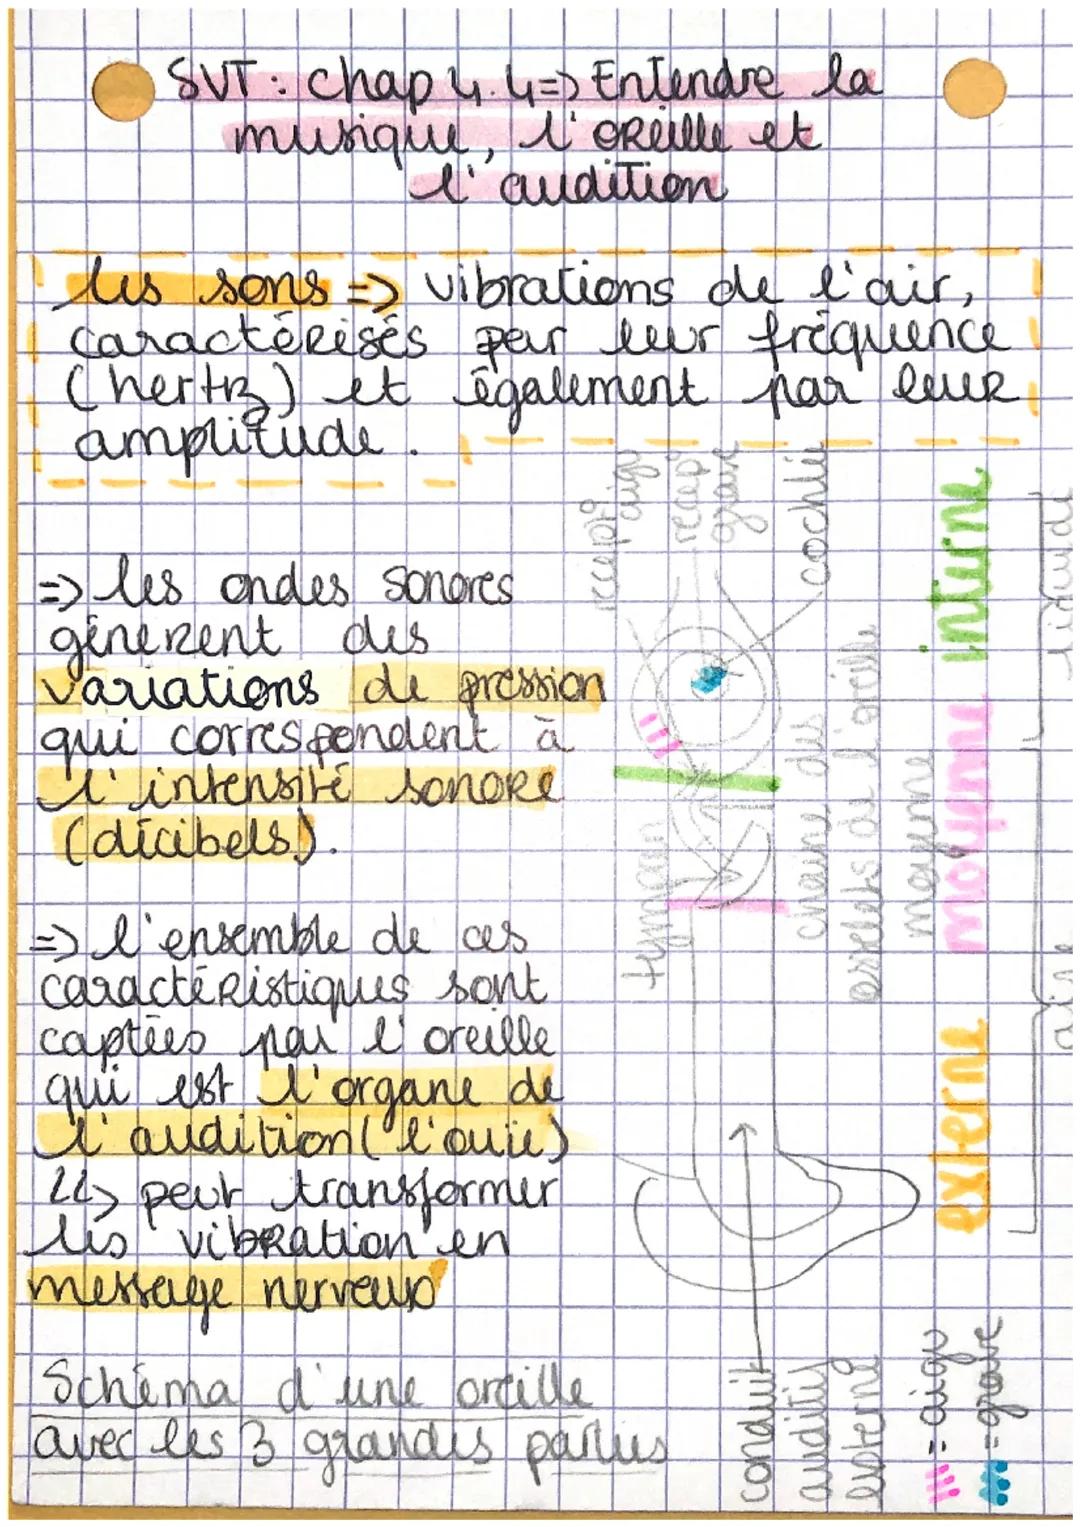 SVT: chap 4.4=> Entendre la
musique, l'oreille et
l'audition
les sons => vibrations de l'air,
caractérisés par leur fréquence
(hertz) et également par leur
amplitude.
=> les ondes sonores
génèrent des
variations de pression
qui correspondent à
l'intensité sonore
(décibels).
=> l'ensemble de ces
caractéristiques sont
captées par l'oreille
qui est l'organe de
l'audition (l'ouïe)
↳> peut transformer
les vibration en
message nerveux
Schéma d'une oreille
avec les 3 grandes parties
récept° aigu
récep° grave
cochlée
tympan
chaîne des
osselets de l'oreille
moyenne
conduit
auditif
externe
interne
moyenne
externe
liquide
aire
= aigu
= grave